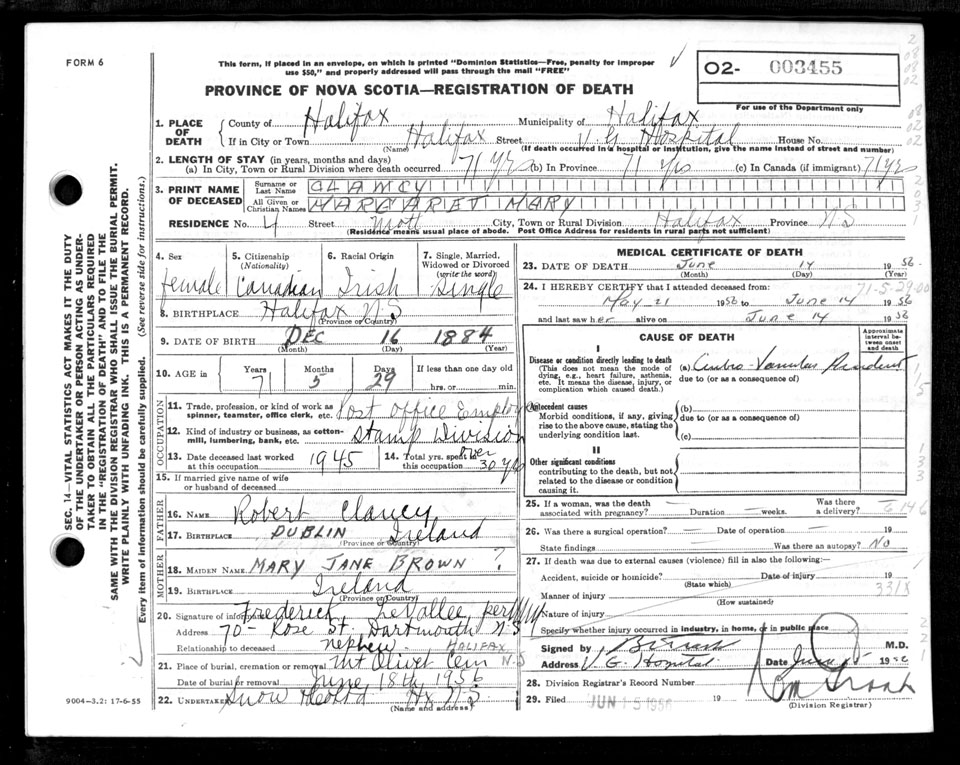 FORM 6
This form, if placed in an envelope, on which is printed "Dominion Statistics—Free, penalty for improper
use $50," and properly addressed will pass through the mail "FREE"
O2- 003455
For use of the Department only
PROVINCE OF NOVA SCOTIA—REGISTRATION OF DEATH
1. PLACE OF DEATH
County of Halifax Municipality of Halifax
If in City or Town Halifax Street V.G Hospital House No.
(Name) (If death occurred in a hospital or institution, give the name instead of street and number)
2. LENGTH OF STAY (in years, months and days)
(a) In City, Town or Rural Division where death occurred 71 yrs (b) In Province 71 yrs (c) In Canada (if immigrant) 71 yrs
3. PRINT NAME OF DECEASED
Surname or Last Name CLANCY
All Given or Christian Names MARGARET MARY
RESIDENCE No. 4 Street City, Town or Rural Division Halifax Province NS
(Residence means usual place of abode. Post Office Address for residents in rural parts not sufficient)
4. Sex female
5. Citizenship (Nationality) Canadian
6. Racial Origin Irish
7. Single, Married, Widowed or Divorced (write the word) Single
8. BIRTHPLACE Halifax N.S
(Province or Country)
9. DATE OF BIRTH DEC 16 1884
(Month) (Day) (Year)
10. AGE Years 71 Months 5 Days 29 If less than one day old hrs. or min.
OCCUPATION
11. Trade, profession or kind of work as spinner, teamster, office clerk, etc. Post Office Employ
12. Kind of industry or business, as cotton-mill, lumbering, bank, etc. Stamp Division
13. Date deceased last worked at this occupation 1945
14. Total yrs. spent in this occupation over 30 yrs
15. If married give name of wife or husband of deceased
FATHER
16. NAME Robert Clancy
17. BIRTHPLACE DUBLIN Ireland
(Province or Country)
MOTHER
18. MAIDEN NAME MARY JANE BROWN ?
19. BIRTHPLACE Ireland
(Province or Country)
20. Signature of informant Frederick LeVallee per
Address 70- Rose St. Dartmouth N S
Relationship to deceased nephew
21. Place of burial, cremation or removal Mt Olivet Cem HALIFAX N.S
Date of burial or removal June 18th 1956
22. UNDERTAKER Snow Hx N.S
(Name and address)
MEDICAL CERTIFICATE OF DEATH
23. DATE OF DEATH June 14 1956
(Month) (Day) (Year)
24. I HEREBY CERTIFY that I attended deceased from: 71-5-29-00
May 21 1956 to June 14 1956
and last saw her alive on June 14 1956
CAUSE OF DEATH
Approximate interval between onset and death
I
Disease or condition directly leading to death
(This does not mean the mode of dying, e.g., heart failure, asthenia, etc. It means the disease, injury, or complication which caused death.)
(a)
due to (or as a consequence of)
Antecedent causes
Morbid conditions, if any, giving rise to the above cause, stating the underlying condition last.
(b)
due to (or as a consequence of)
(c)
II
Other significant conditions
contributing to the death, but not related to the disease or condition causing it.
25. If a woman, was the death associated with pregnancy? Duration weeks. Was there a delivery?
26. Was there a surgical operation? Date of operation 19
State findings Was there an autopsy? No
27. If death was due to external causes (violence) fill in also the following:
Accident, suicide or homicide? Date of injury 19
(State which)
Manner of injury 331X
(How sustained)
Nature of injury
Specify whether injury occurred in industry, in home, or in public place
Signed by M.D.
Address V. G. Hospital. Date June 15 1956
28. Division Registrar's Record Number
29. Filed JUN 15 1956 19
(Division Registrar)
SEC. 14—VITAL STATISTICS ACT MAKES IT THE DUTY
OF THE UNDERTAKER OR PERSON ACTING AS UNDER-
TAKER TO OBTAIN ALL THE PARTICULARS REQUIRED
IN THE "REGISTRATION OF DEATH" AND TO FILE THE
SAME WITH THE DIVISION REGISTRAR WHO SHALL ISSUE THE BURIAL PERMIT.
WRITE PLAINLY WITH UNFADING INK. THIS IS A PERMANENT RECORD.
Every item of information should be carefully supplied. (See reverse side for instructions.)
9004-3.2: 17-6-55